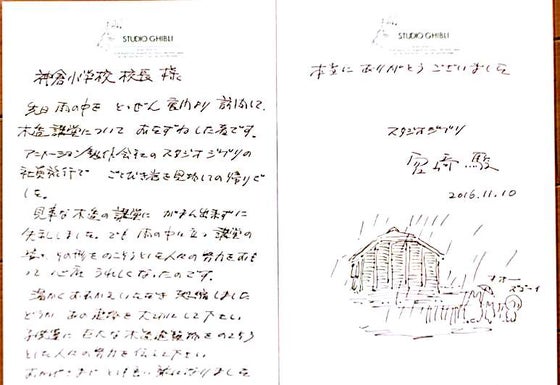 STUDIO GHIBLI
神倉小学校 校長 様
先日 雨の中を とつぜん 訪問して、
木造 講堂について おたずねした者です。
アニメーション製作会社の スタジオジブリの
社員旅行で 見物しての帰りで
した。
見事な木造の講堂に がまん出来ずに
失礼しました。でも 雨の中に立つ 講堂の
姿、その形をのこそうとした人々の努力をおも
って 心底 うれしくなったのです。
温かく おだきいただき 恐縮しました
どうか あの建物を 大切にして下さい
子供達に 巨大な木造建築物をのこそう
とした人々の努力を伝えて下さい
おかげさまで とても良い旅になりました
STUDIO GHIBLI
本当に ありがとう ございました
スタジオジブリ
宮崎 駿
2016.11.10
オオー
スゴーイ